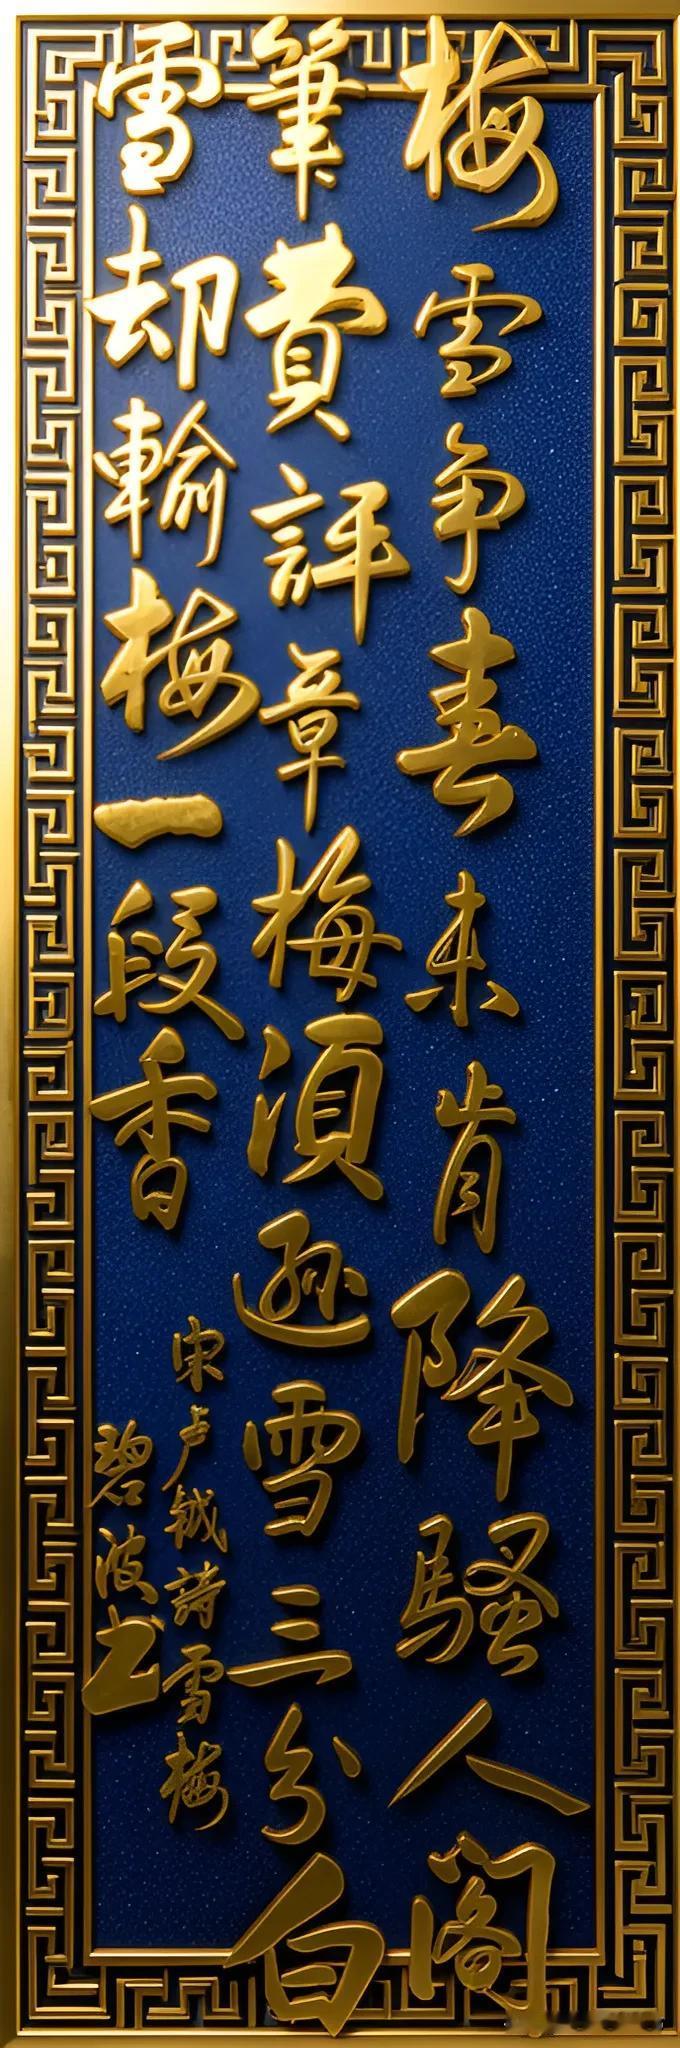 梅雪争春未肯降骚人阁
筆費評章梅須逊雪三分白
雪却輸梅一段香
宋卢钺詩雪梅
碧波书